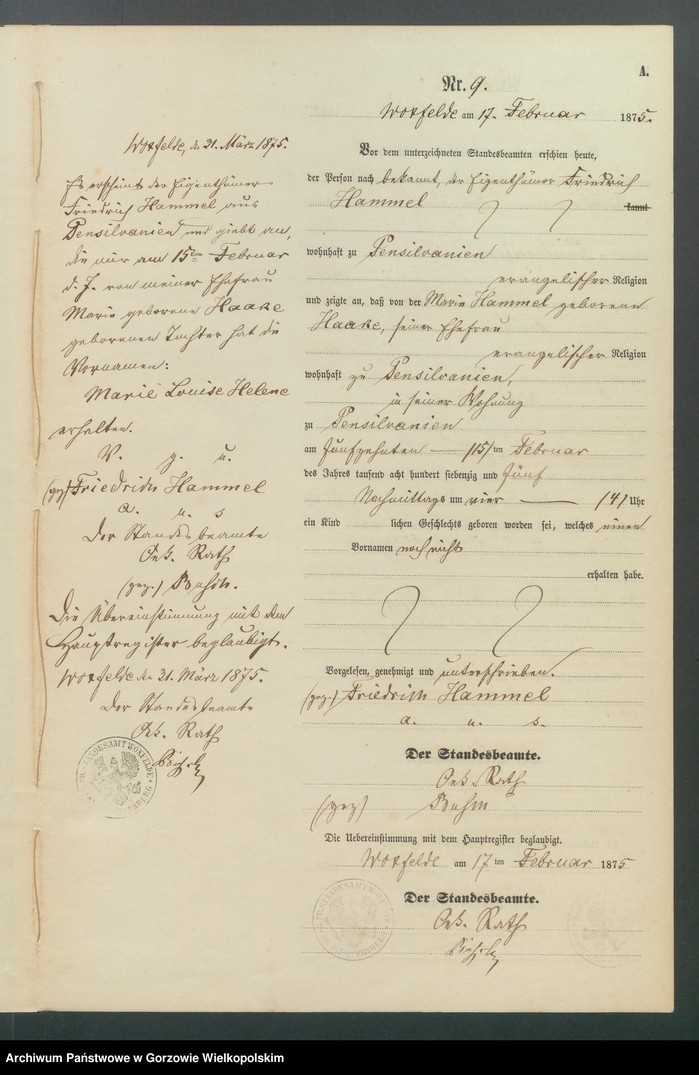 A.
Nr. 9.
Woxfelde am 17. Februar 1875.
Vor dem unterzeichneten Standesbeamten erschien heute,
der Person nach bekannt, der Eigenthümer Friedrich
Hammel kannt
wohnhaft zu Pensilvanien
evangelischer Religion
und zeigte an, daß von der Marie Hammel geborene
Haake, seiner Ehefrau
evangelischer Religion
wohnhaft zu Pensilvanien,
in seiner Wohnung
zu Pensilvanien
am fünfzehnten (15) ten Februar
des Jahres tausend acht hundert siebenzig und fünf
Nachmittags um vier (4) Uhr
ein Kind lichen Geschlechts geboren worden sei, welches einen
Vornamen noch nicht
erhalten habe.
Vorgelesen, genehmigt und unterschrieben.
(gez.) Friedrich Hammel
a. u. s.
Der Standesbeamte.
Rath
(gez)
Die Uebereinstimmung mit dem Hauptregister beglaubigt.
Woxfelde am 17 ten Februar 1875
Der Standesbeamte.
Rath
Woxfelde, d. 21. März 1875.
Es erscheint der Eigenthümer
Friedrich Hammel aus
Pensilvanien und giebt an,
die mir am 15ten Februar
d. J. von meiner Ehefrau
Marie geborene Haake
geborenen Tochter hat die
Vornamen:
Marie Louise Helene
erhalten.
V. g. u.
(gez) Friedrich Hammel
a. u. s
Der Standesbeamte
Rath
(gez.)
Die Übereinstimmung mit dem
Hauptregister beglaubigt.
Woxfelde d. 21. März 1875.
Der Standesbeamte
Rath
STANDESAMT WOXFELDE
Archiwum Państwowe w Gorzowie Wielkopolskim